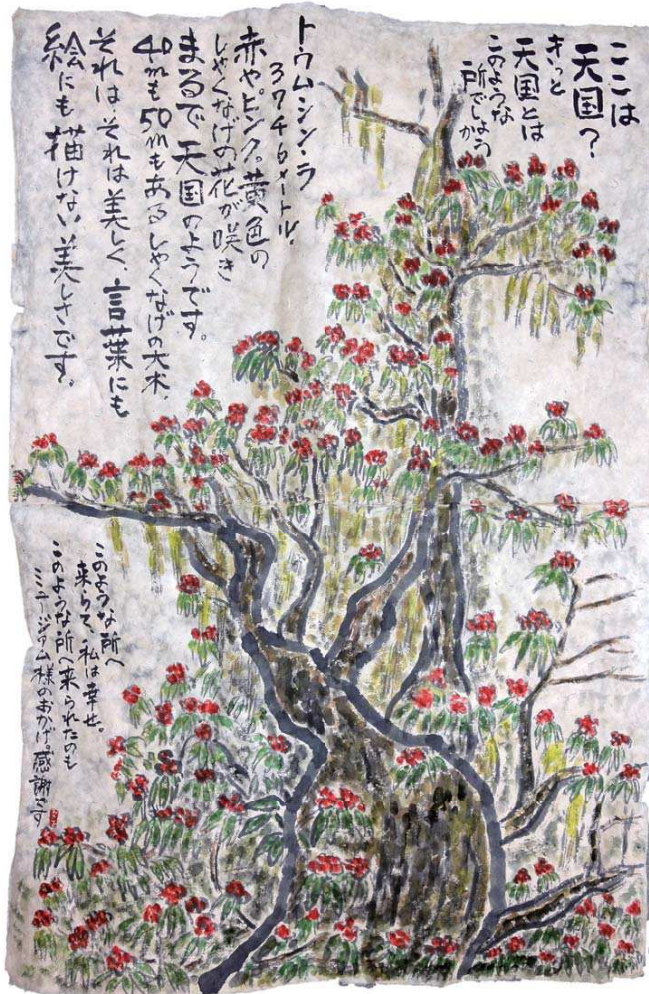 ここは
天国？
きっと
天国とは
このような
所でしょう
トウムシン・ラ
3746メートル.
赤やピンク。黄色の
しゃくなげの花が咲き
まるで天国のようです。
40mも50mもあるしゃくなげの大木、
それはそれは美しく、言葉にも
絵にも描けない美しさです。
このような所へ
来られて、私は幸せ。
このような所へ来られたのも
ミュージアム様のおかげ。感謝です